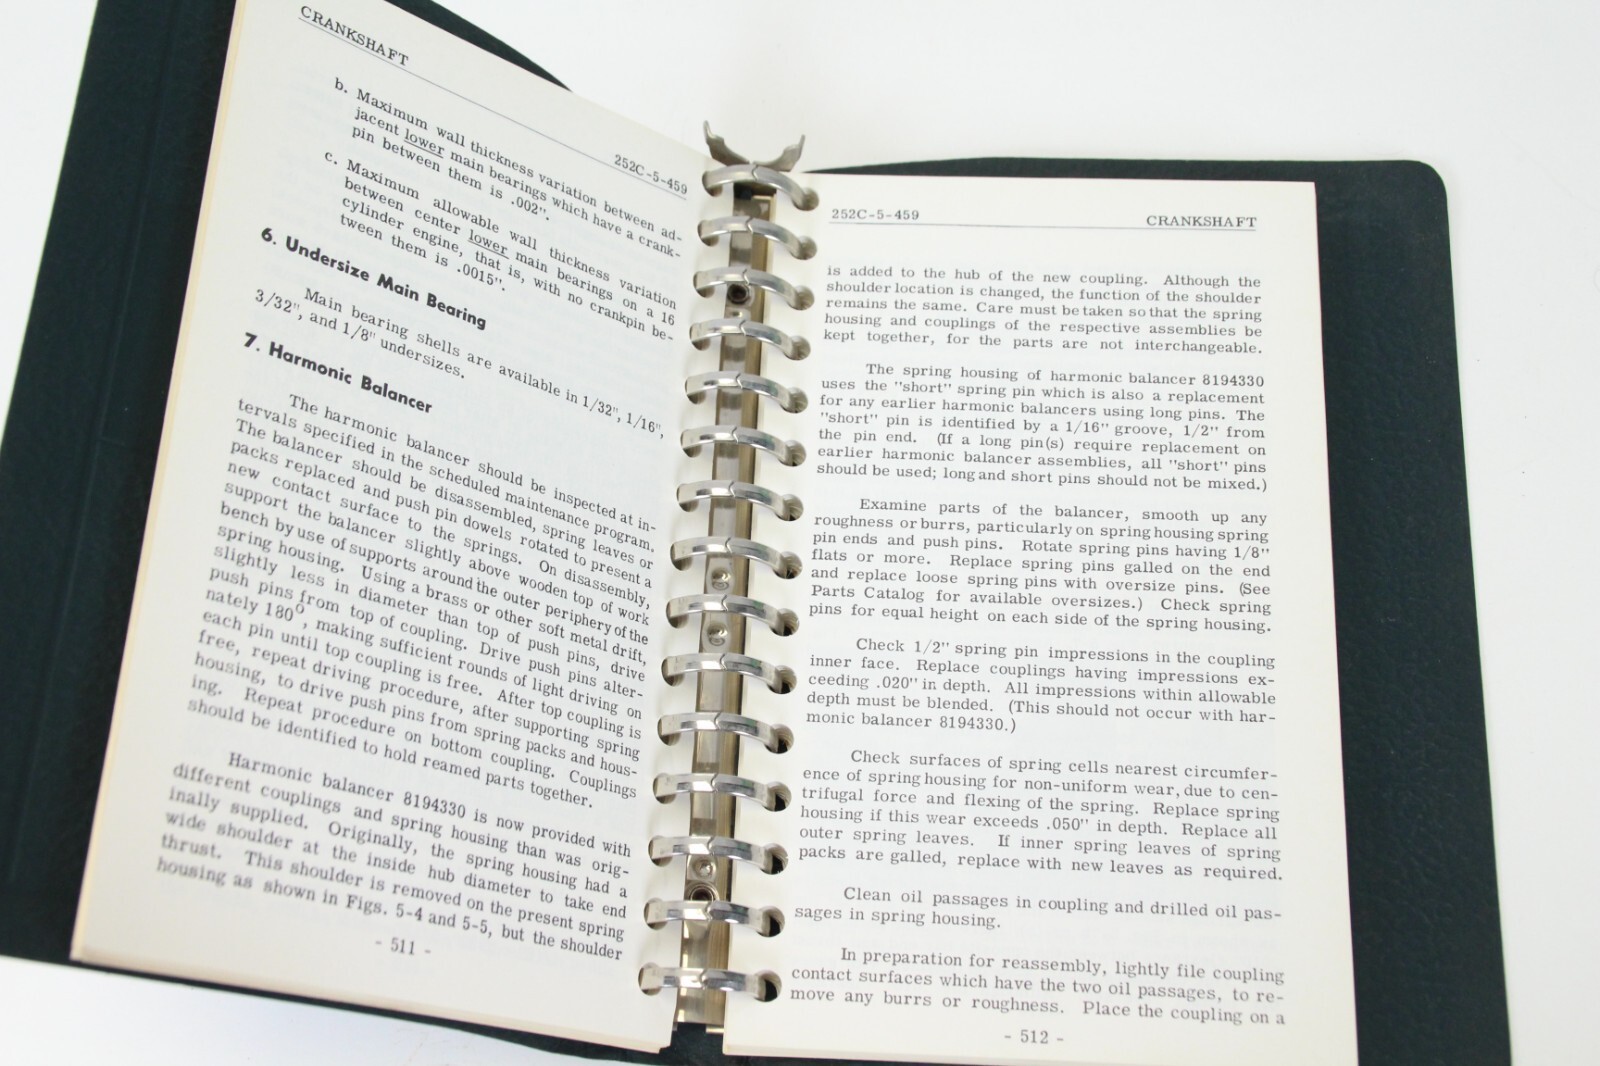 CRANKSHAFT
252C-5-459
b. Maximum wall thickness variation between ad-
jacent lower main bearings which have a crank-
pin between them is .002".
c. Maximum allowable wall thickness variation
between center lower main bearings on a 16
cylinder engine, that is, with no crankpin be-
tween them is .0015".
6. Undersize Main Bearing
Main bearing shells are available in 1/32", 1/16",
3/32", and 1/8" undersizes.
7. Harmonic Balancer
The harmonic balancer should be inspected at in-
tervals specified in the scheduled maintenance program.
The balancer should be disassembled, spring leaves or
packs replaced and push pin dowels rotated to present a
new contact surface to the springs. On disassembly,
support the balancer slightly above wooden top of work
bench by use of supports around the outer periphery of the
spring housing. Using a brass or other soft metal drift,
slightly less in diameter than top of push pins, drive
push pins from top of coupling. Drive push pins alter-
nately 180°, making sufficient rounds of light driving on
each pin until top coupling is free. After top coupling is
free, repeat driving procedure, after supporting spring
housing, to drive push pins from spring packs and hous-
ing. Repeat procedure on bottom coupling. Couplings
should be identified to hold reamed parts together.
Harmonic balancer 8194330 is now provided with
different couplings and spring housing than was orig-
inally supplied. Originally, the spring housing had a
wide shoulder at the inside hub diameter to take end
thrust. This shoulder is removed on the present spring
housing as shown in Figs. 5-4 and 5-5, but the shoulder
- 511 -
252C-5-459 CRANKSHAFT
is added to the hub of the new coupling. Although the
shoulder location is changed, the function of the shoulder
remains the same. Care must be taken so that the spring
housing and couplings of the respective assemblies be
kept together, for the parts are not interchangeable.
The spring housing of harmonic balancer 8194330
uses the "short" spring pin which is also a replacement
for any earlier harmonic balancers using long pins. The
"short" pin is identified by a 1/16" groove, 1/2" from
the pin end. (If a long pin(s) require replacement on
earlier harmonic balancer assemblies, all "short" pins
should be used; long and short pins should not be mixed.)
Examine parts of the balancer, smooth up any
roughness or burrs, particularly on spring housing spring
pin ends and push pins. Rotate spring pins having 1/8"
flats or more. Replace spring pins galled on the end
and replace loose spring pins with oversize pins. (See
Parts Catalog for available oversizes.) Check spring
pins for equal height on each side of the spring housing.
Check 1/2" spring pin impressions in the coupling
inner face. Replace couplings having impressions ex-
ceeding .020" in depth. All impressions within allowable
depth must be blended. (This should not occur with har-
monic balancer 8194330.)
Check surfaces of spring cells nearest circumfer-
ence of spring housing for non-uniform wear, due to cen-
trifugal force and flexing of the spring. Replace spring
housing if this wear exceeds .050" in depth. Replace all
outer spring leaves. If inner spring leaves of spring
packs are galled, replace with new leaves as required.
Clean oil passages in coupling and drilled oil pas-
sages in spring housing.
In preparation for reassembly, lightly file coupling
contact surfaces which have the two oil passages, to re-
move any burrs or roughness. Place the coupling on a
- 512 -